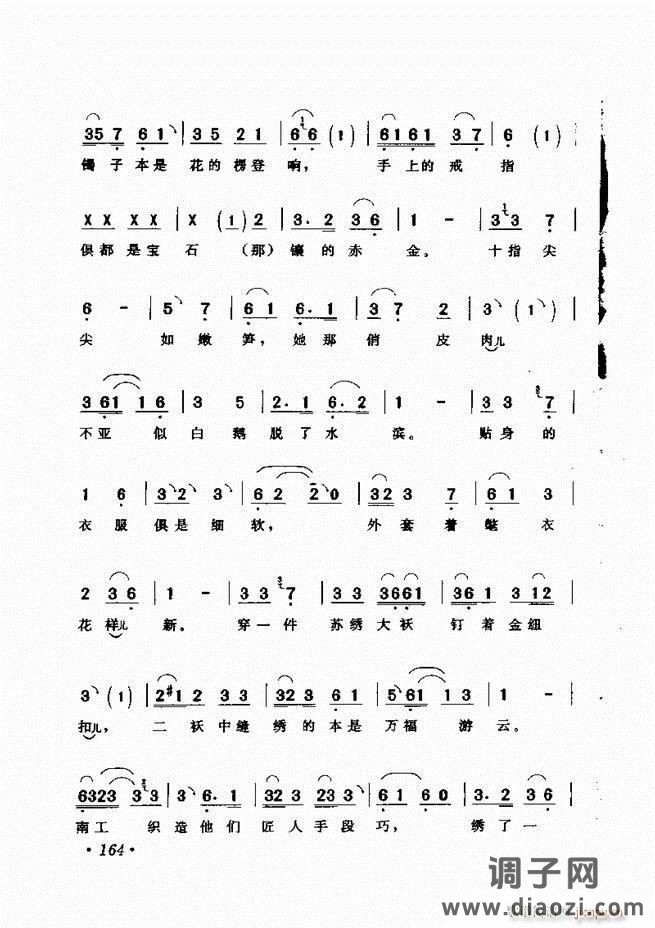 35 7 6 1 | 3 5 2 1 | 6 6 (1) | 6161 3 7 | 6 (1) |
镯子本是 花的楞登响， 手上的戒 指
X X X X | X (1) 2 | 3. 2 3 6 | 1 - | 3 3 7 |
俱都是宝 石 （那）镶的赤 金。 十指尖
6 - | 5 7 | 6 1 6. 1 | 3 7 2 | 3 (1) |
尖 如嫩 笋，她那俏 皮 肉儿
3 61 1 6 | 3 5 | 2. 1 6. 2 | 1 - | 3 3 7 |
不亚 似白鹅脱了水 滨。 贴身的
1 6 | 3 2 3 | 6 2 2 0 | 32 3 7 | 6 1 3 |
衣服俱是细软， 外套着氅衣
2 3 6 | 1 - | 3 3 7 | 3 3 3661 | 36 1 3 12 |
花样儿新。穿一件 苏绣大袄钉着金纽
3 (1) | 2 #1 2 3 3 | 32 3 6 1 | 5 61 1 3 | 1 - |
扣儿， 二袄中缝绣的本是万福 游云。
6323 3 3 | 3 6. 1 | 32 3 23 3 | 6 1 6 0 | 3. 2 3 6 |
南工 织造他们匠人手段巧， 绣了一
· 164 ·
调子网
www.diaozi.com